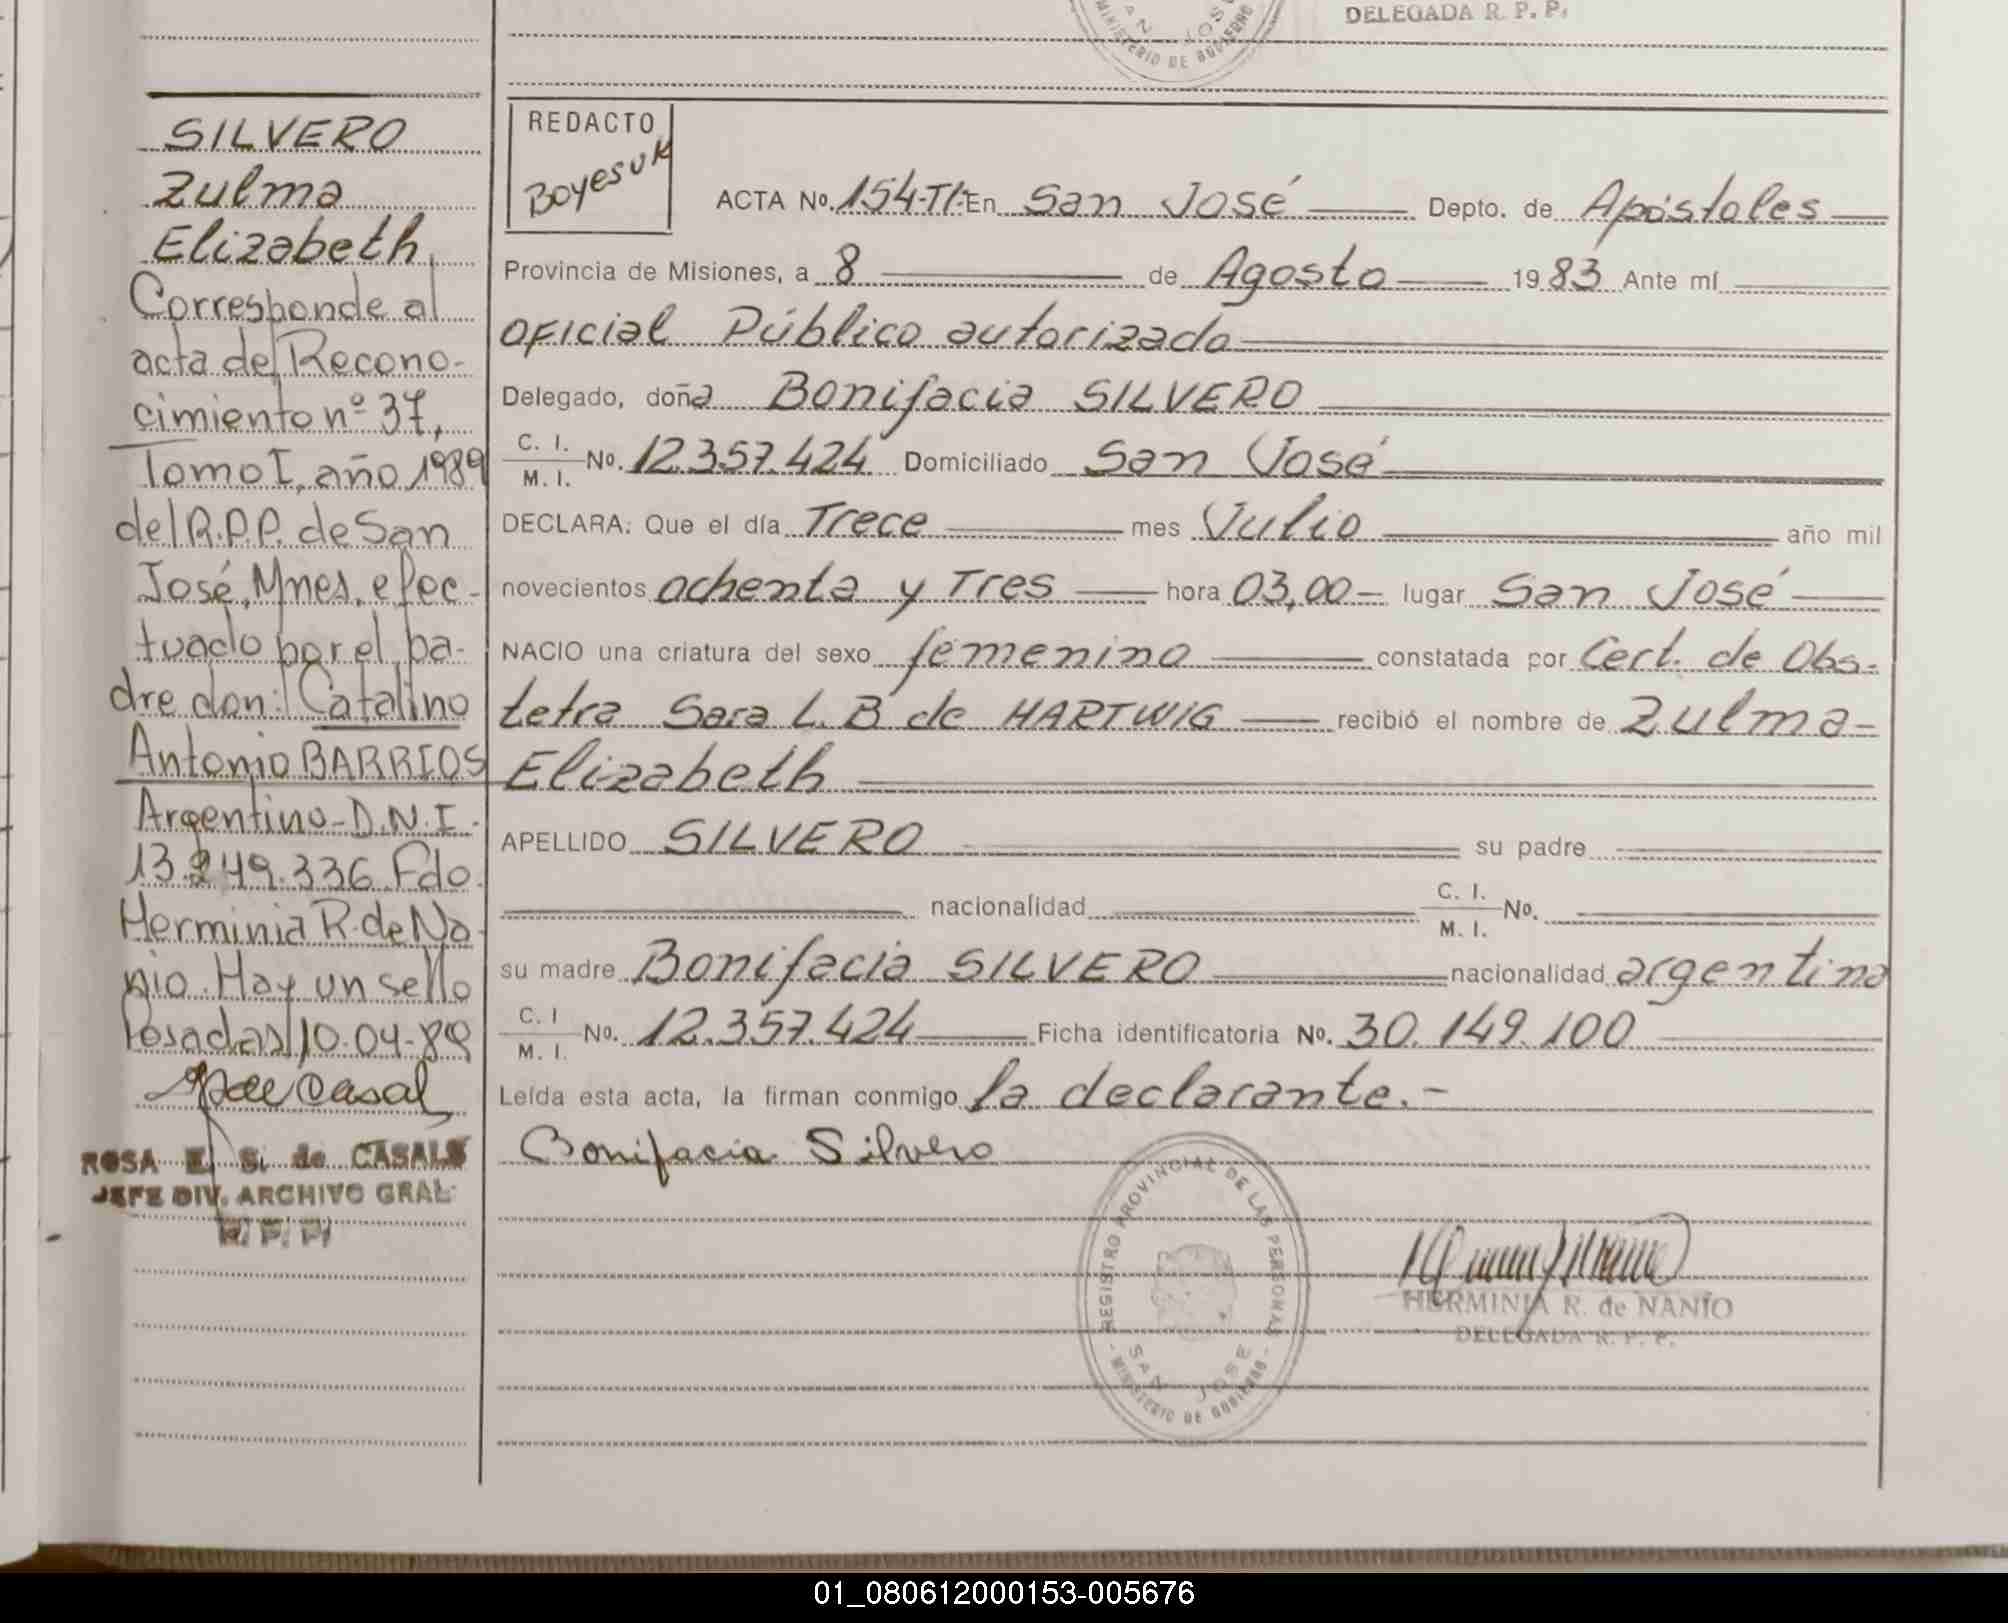 DELEGADA R. P. P.
SAN JOSE
MINISTERIO DE GOBIERNO
SILVERO
Zulma
Elizabeth,
Corresponde al
acta de Recono-
cimiento nº 37,
Tomo I, año 1989
del R.P.P. de San
José, Mnes, efec-
tuado por el pa-
dre don: Catalino
Antonio BARRIOS
Argentino-D.N.I.
13.249.336 Fdo.
Herminia R. de Na-
nio. Hay un sello
Posadas 10-04-89
ROSA E. S. de CASALS
JEFE DIV. ARCHIVO GRAL.
R. P. P.
REDACTO
Boyesuk
ACTA No. 154-TI- En San José Depto. de Apóstoles
Provincia de Misiones, a 8 de Agosto 1983 Ante mí
Oficial Público autorizado
Delegado, doña Bonifacia SILVERO
C. I. M. I. No. 12.357.424 Domiciliado San José
DECLARA: Que el día Trece mes Julio año mil
novecientos ochenta y Tres hora 03,00- lugar San José
NACIO una criatura del sexo femenino constatada por Cert. de Obs-
tetra Sara L. B de HARTWIG recibió el nombre de Zulma-
Elizabeth
APELLIDO SILVERO su padre
nacionalidad C. I. M. I. No.
su madre Bonifacia SILVERO nacionalidad argentina
C. I M. I. No. 12.357.424 Ficha identificatoria No. 30.149.100
Leída esta acta, la firman conmigo la declarante.-
Bonifacia Silvero
REGISTRO PROVINCIAL DE LAS PERSONAS
SAN JOSE
- MINISTERIO DE GOBIERNO -
HERMINIA R. de NANIO
DELEGADA R. P. P.
01_080612000153-005676